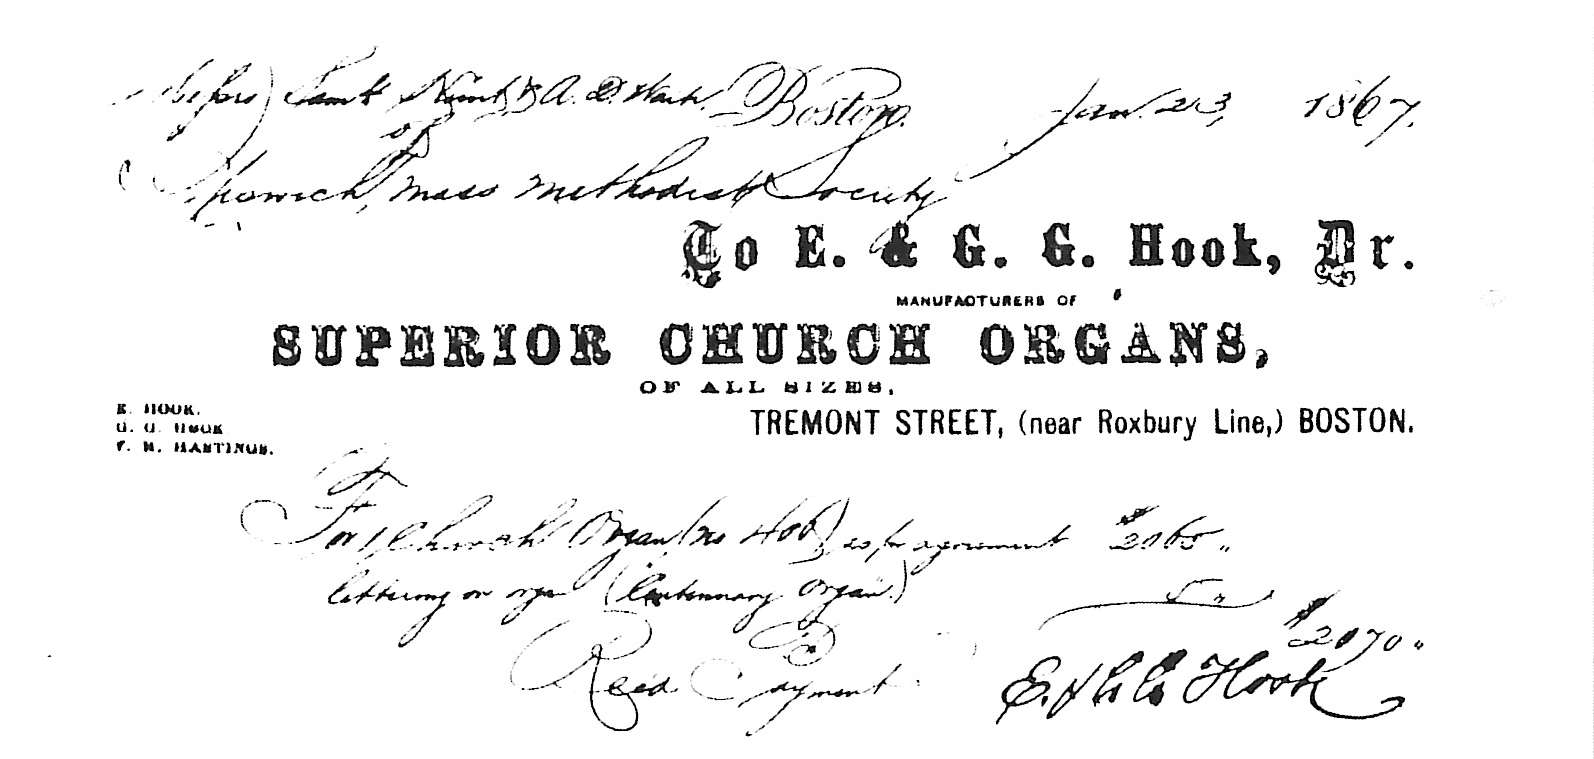 Boston, Jan. 23, 1867.
of
Ipswich, Mass Methodist Society
To E. & G. G. Hook, Dr.
MANUFACTURERS OF
SUPERIOR CHURCH ORGANS,
OF ALL SIZES,
E. HOOK.
G. G. HOOK
F. H. HASTINGS.
TREMONT STREET, (near Roxbury Line,) BOSTON.
For Church Organ (no 406) as per agreement $2065 "
lettering on organ ("Centennary Organ.") 5 "
$2070 "
Recd Payment E. & G. G. Hook